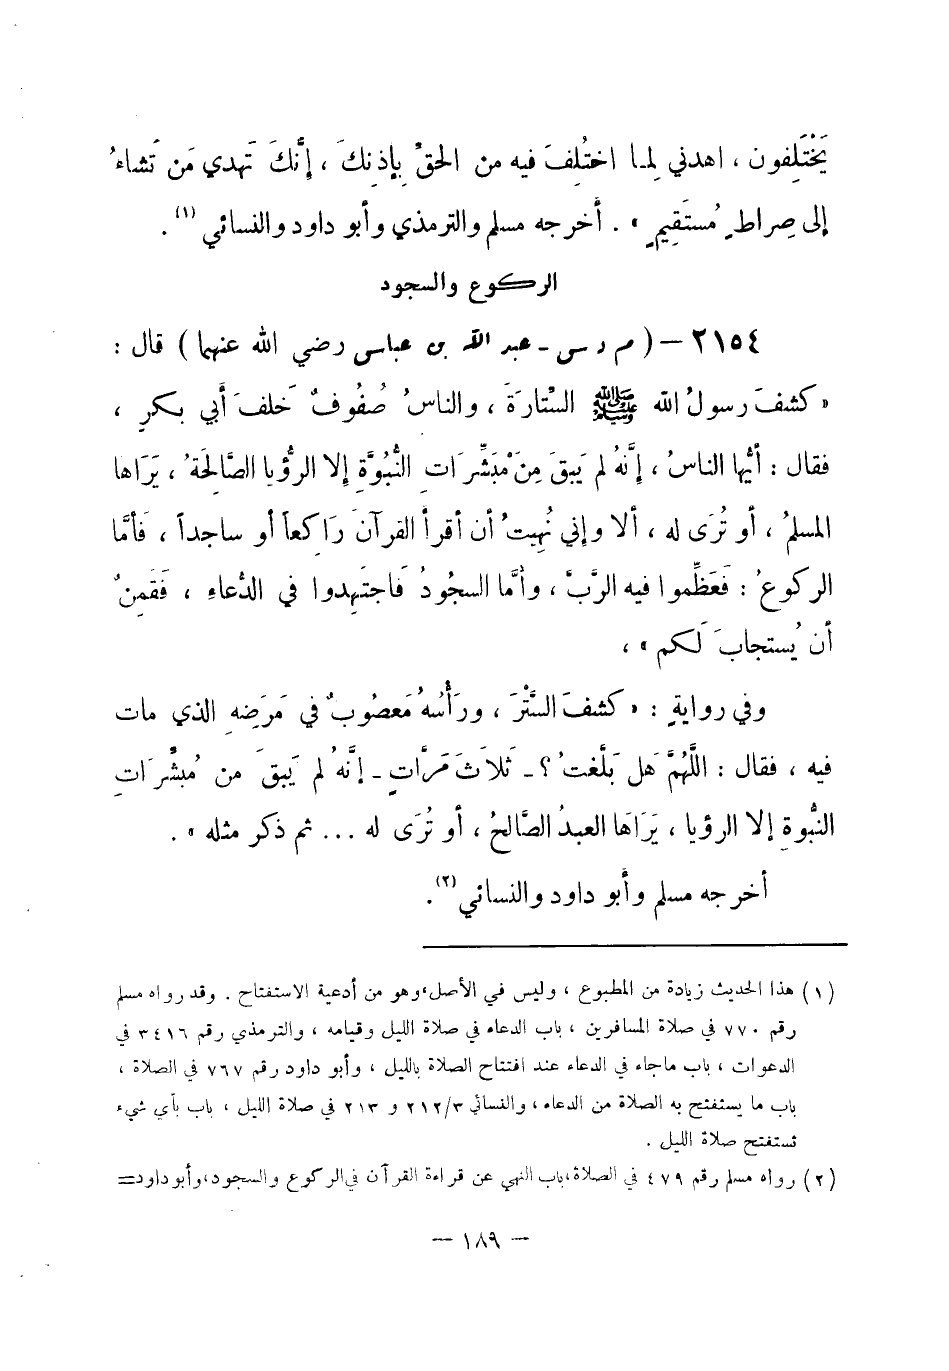 يَختَلِفون ، اهدني لِما اختُلِفَ فيه من الحقِّ بإذنِكَ ، إنَّكَ تَهدي مَن تَشاءُ
إلى صِراطٍ مُستَقِيمٍ » . أخرجه مسلم والترمذي وأبو داود والنسائي (١) .
الركوع والسجود
٢١٥٤ – ( م د س - عبد الله بن عباس رضي الله عنهما ) قال :
« كشفَ رسولُ الله ﷺ السِّتارَةَ ، والناسُ صُفُوفٌ خَلفَ أبي بكرٍ ،
فقال : أيُّها الناسُ ، إنَّهُ لم يَبقَ مِنْ مُبَشِّرَاتِ النُّبُوَّةِ إلا الرُّؤيا الصَّالِحَةُ ، يَرَاها
المسلمُ ، أو تُرَى له ، ألا وإني نُهِيتُ أن أقرأَ القرآنَ رَاكِعاً أو ساجداً ، فَأمَّا
الركوعُ : فَعَظِّموا فيه الرَّبَّ ، وأمَّا السجُودُ فَاجتَهِدوا في الدُّعاءِ ، فَقَمِنٌ
أن يُستجابَ لَكم » ،
وفي روايةٍ : « كشفَ السِّتْرَ ، ورَأْسُهُ مَعصُوبٌ في مَرَضِهِ الذي مات
فيه ، فقال : اللَّهُمَّ هَل بَلَّغتُ ؟ - ثَلاثَ مَرَّاتٍ - إنَّهُ لم يَبقَ من مُبَشِّرَاتِ
النُّبوةِ إلا الرؤيا ، يَرَاهَا العبدُ الصَّالحُ ، أو تُرَى له ... ثم ذكر مثله » .
أخرجه مسلم وأبو داود والنسائي (٢) .
(١) هذا الحديث زيادة من المطبوع ، وليس في الأصل، وهو من أدعية الاستفتاح . وقد رواه مسلم
رقم ٧٧٠ في صلاة المسافرين ، باب الدعاء في صلاة الليل وقيامه ، والترمذي رقم ٣٤١٦ في
الدعوات ، باب ماجاء في الدعاء عند افتتاح الصلاة بالليل ، وأبو داود رقم ٧٦٧ في الصلاة ،
باب ما يستفتح به الصلاة من الدعاء ، والنسائي ٢١٢/٣ و ٢١٣ في صلاة الليل ، باب بأي شيء
تستفتح صلاة الليل .
(٢) رواه مسلم رقم ٤٧٩ في الصلاة ، باب النهي عن قراءة القرآن في الركوع والسجود، وأبو داود=
– ١٨٩ –